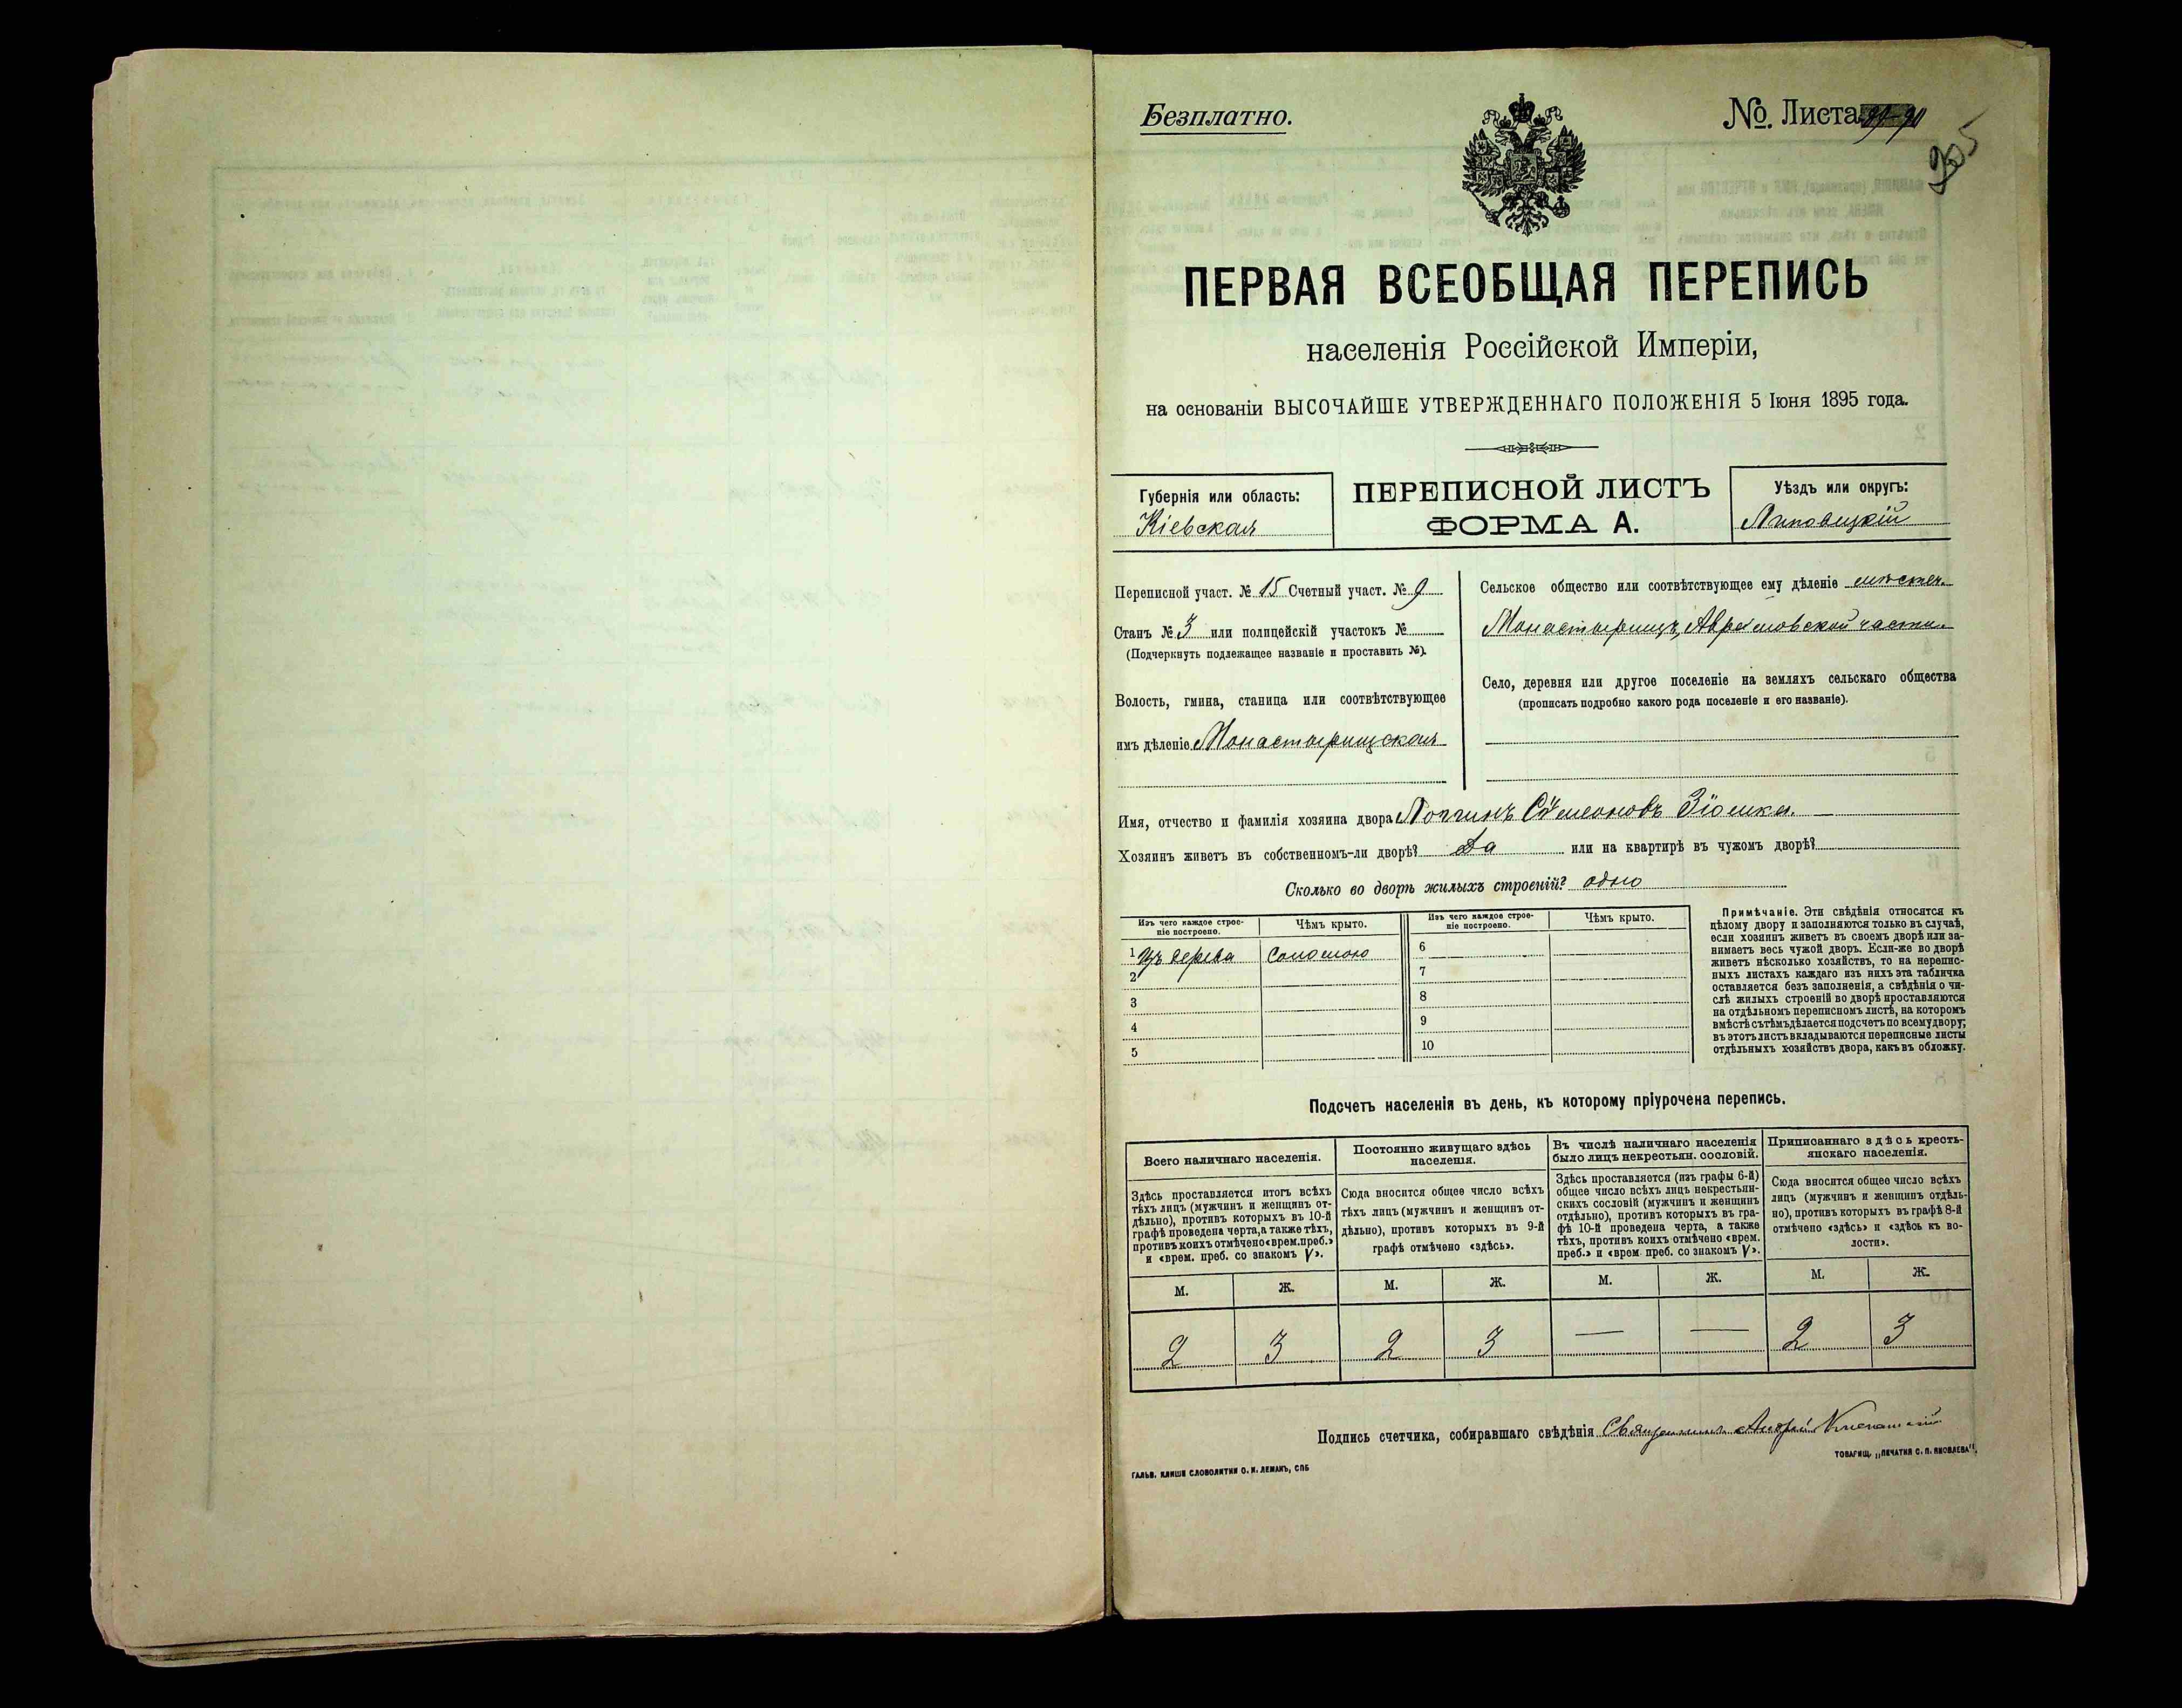 Безплатно.
№. Листа 90
205
ПЕРВАЯ ВСЕОБЩАЯ ПЕРЕПИСЬ
населенія Россійской Имперіи,
на основаніи ВЫСОЧАЙШЕ УТВЕРЖДЕННАГО ПОЛОЖЕНІЯ 5 Іюня 1895 года.
Губернія или область:
Кіевская
ПЕРЕПИСНОЙ ЛИСТЪ
ФОРМА А.
Уѣздъ или округъ:
Липовецкій
Переписной участ. № 15 Счетный участ. № 9
Станъ № 3 или полицейскій участокъ №
(Подчеркнуть подлежащее названіе и проставить №).
Волость, гмина, станица или соотвѣтствующее
имъ дѣленіе Монастырищская
Сельское общество или соотвѣтствующее ему дѣленіе мѣстеч.
Монастырищъ, Аврамовской части.
Село, деревня или другое поселеніе на земляхъ сельскаго общества
(прописать подробно какого рода поселеніе и его названіе).
Имя, отчество и фамилія хозяина двора Логгинъ Сѵмеоновъ Зіомка.
Хозяинъ живетъ въ собственномъ-ли дворѣ? Да или на квартирѣ въ чужомъ дворѣ?
Сколько во дворѣ жилыхъ строеній? одно
Изъ чего каждое строе-
ніе построено.
Чѣмъ крыто.
Изъ чего каждое строе-
ніе построено.
Чѣмъ крыто.
1 Изъ дерева Соломою
2
3
4
5
6
7
8
9
10
Примѣчаніе. Эти свѣдѣнія относятся къ
цѣлому двору и заполняются только въ случаѣ,
если хозяинъ живетъ въ своемъ дворѣ или за-
нимаетъ весь чужой дворъ. Если-же во дворѣ
живетъ нѣсколько хозяйствъ, то на перепис-
ныхъ листахъ каждаго изъ нихъ эта табличка
оставляется безъ заполненія, а свѣдѣнія о чи-
слѣ жилыхъ строеній во дворѣ проставляются
на отдѣльномъ переписномъ листѣ, на которомъ
вмѣстѣ съ тѣмъ дѣлается подсчетъ по всему двору;
въ этотъ листъ вкладываются переписные листы
отдѣльныхъ хозяйствъ двора, какъ въ обложку.
Подсчетъ населенія въ день, къ которому пріурочена перепись.
Всего наличнаго населенія.
Здѣсь проставляется итогъ всѣхъ
тѣхъ лицъ (мужчинъ и женщинъ от-
дѣльно), противъ которыхъ въ 10-й
графѣ проведена черта, а также тѣхъ,
противъ коихъ отмѣчено «врем. преб.»
и «врем. преб. со знакомъ V».
Постоянно живущаго здѣсь
населенія.
Сюда вносится общее число всѣхъ
тѣхъ лицъ (мужчинъ и женщинъ от-
дѣльно), противъ которыхъ въ 9-й
графѣ отмѣчено «здѣсь».
Въ числѣ наличнаго населенія
было лицъ некрестьян. сословій.
Здѣсь проставляется (изъ графы 6-й)
общее число всѣхъ лицъ некрестьян-
скихъ сословій (мужчинъ и женщинъ
отдѣльно), противъ которыхъ въ гра-
фѣ 10-й проведена черта, а также
тѣхъ, противъ коихъ отмѣчено «врем.
преб.» и «врем. преб. со знакомъ V».
Приписаннаго здѣсь кресть-
янскаго населенія.
Сюда вносится общее число всѣхъ
лицъ (мужчинъ и женщинъ отдѣль-
но), противъ которыхъ въ графѣ 8-й
отмѣчено «здѣсь» и «здѣсь къ во-
лости».
М. Ж. М. Ж. М. Ж. М. Ж.
2 3 2 3 — — 2 3
Подпись счетчика, собиравшаго свѣдѣнія Священникъ Андрей
ТОВАРИЩ. „ПЕЧАТНЯ С. П. ЯКОВЛЕВА".
ГАЛЬВ. КЛИШЕ СЛОВОЛИТНИ О. И. ЛЕМАНЪ, СПБ